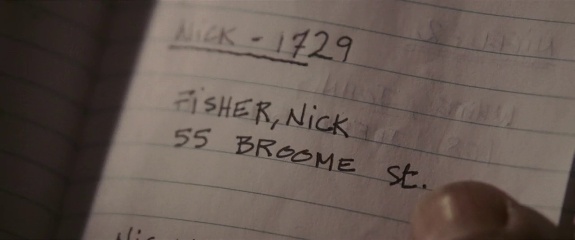 NICK - 1729
FISHER, NICK
55 BROOME St.